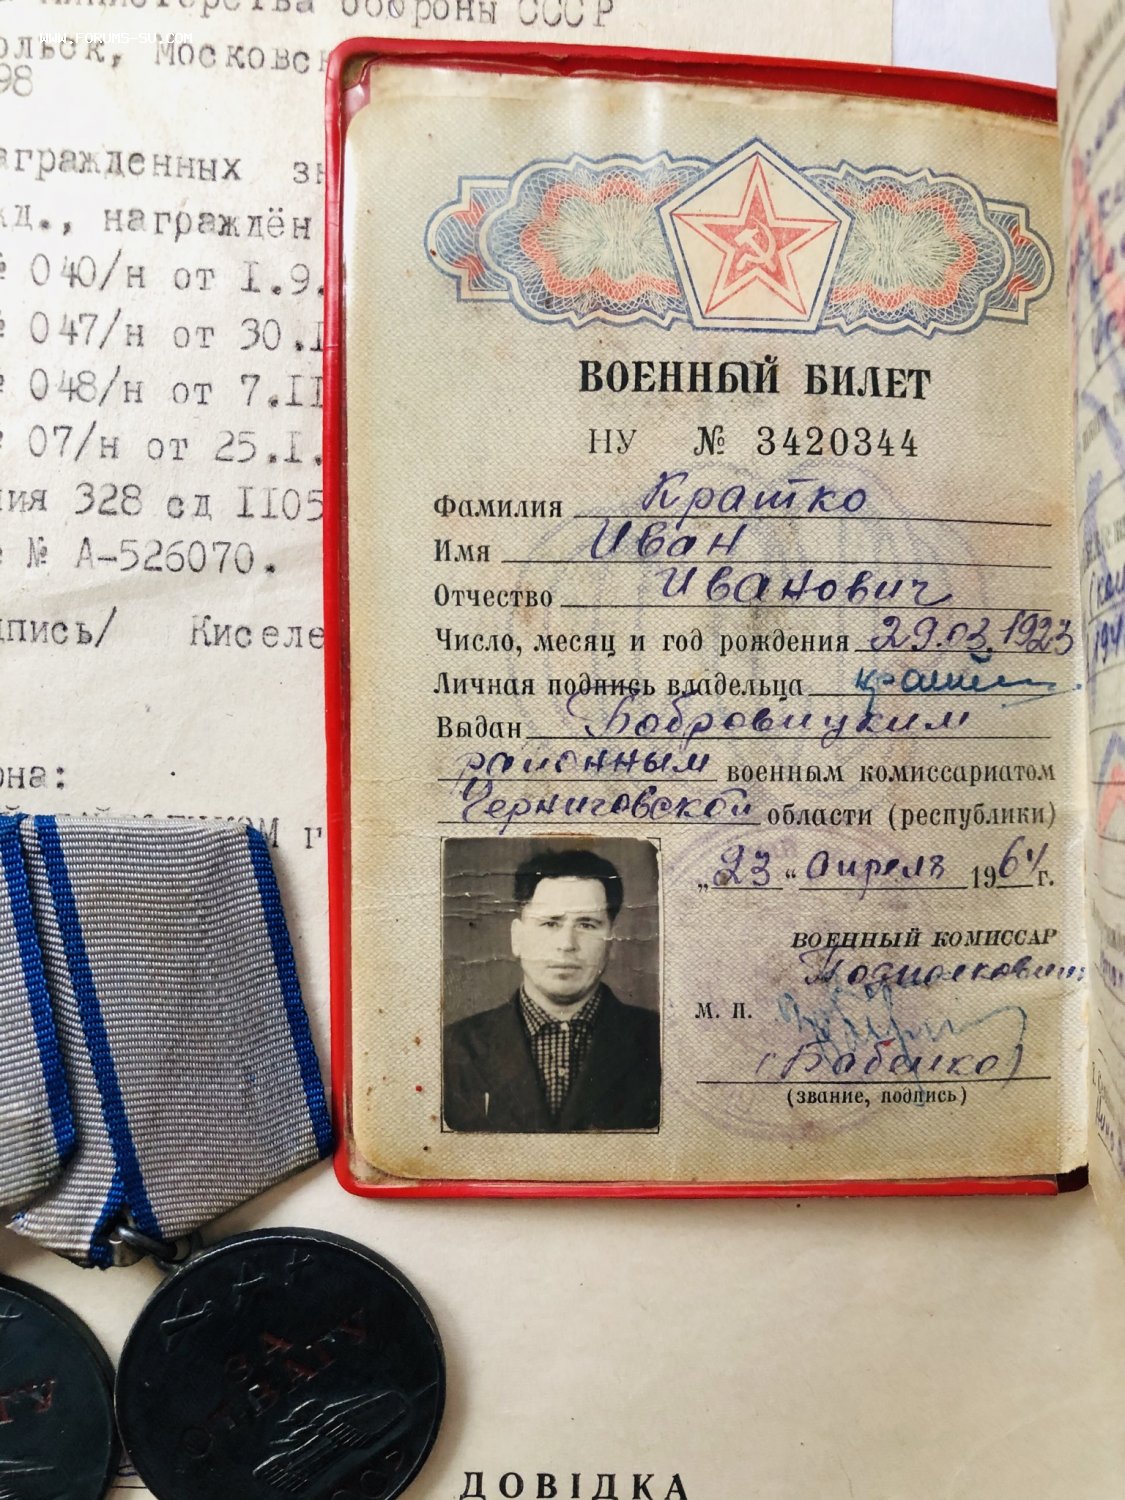 Министерства обороны СССР
WWW.FORUMS-SU.COM
ольск, Московск
98
агражденных зн
жд., награждён
№ 040/н от I.9.
№ 047/н от 30.I
№ 048/н от 7.II
№ 07/н от 25.I.
ия 328 сд II05
№ А-526070.
дпись/ Киселе
она:
ВОЕННЫЙ БИЛЕТ
НУ № 3420344
Фамилия Кратко
Имя Иван
Отчество Иванович
Число, месяц и год рождения 29.03.1923
Личная подпись владельца
Выдан Бобровицким
районным военным комиссариатом
Черниговской области (республики)
„23“ апреля 1964 г.
ВОЕННЫЙ КОМИССАР
Подполковник
М. П.
(Бабенко)
(звание, подпись)
ЗА
ОТВАГУ
ГУ
ДОВІДКА